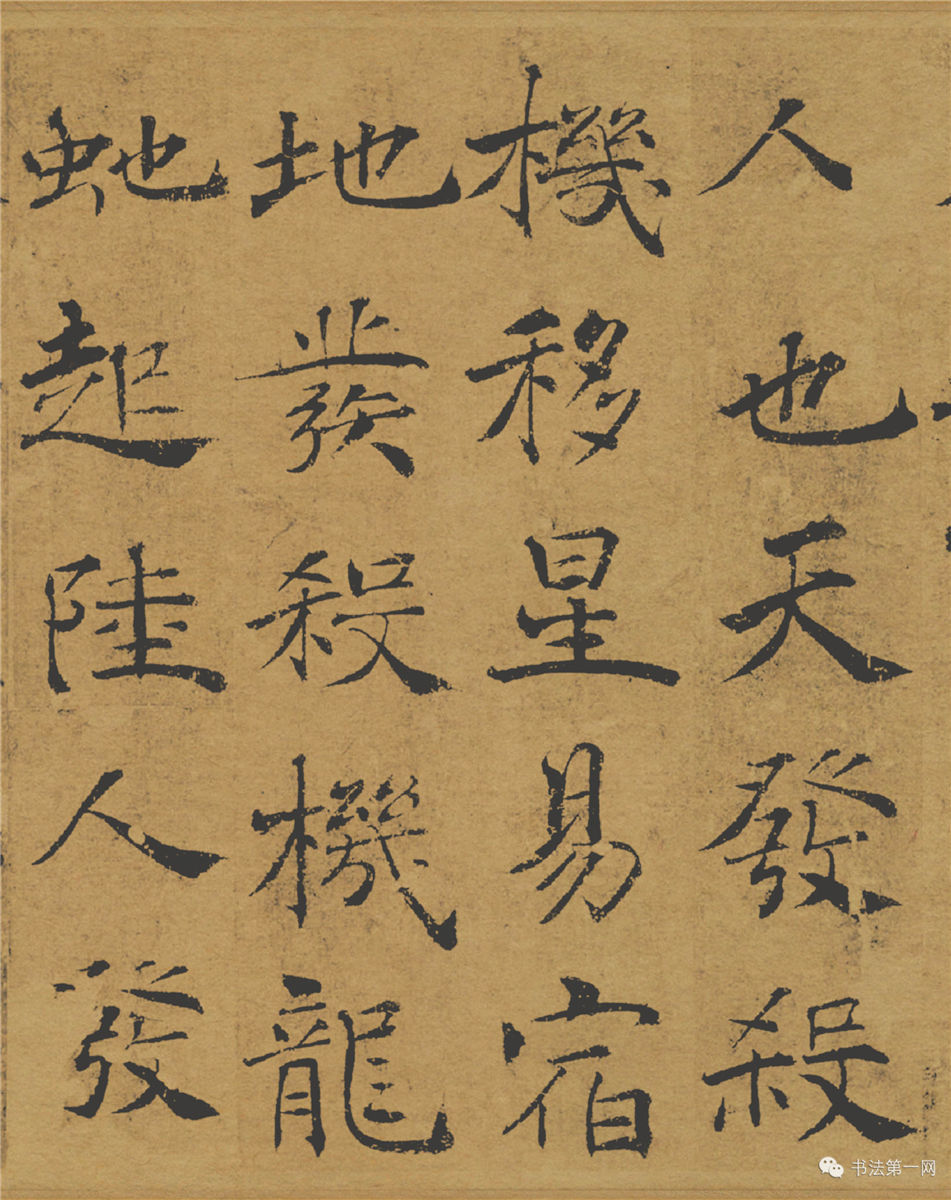 人也天發殺
機移星易宿
地發殺機龍
虵起陸人發
书法第一网